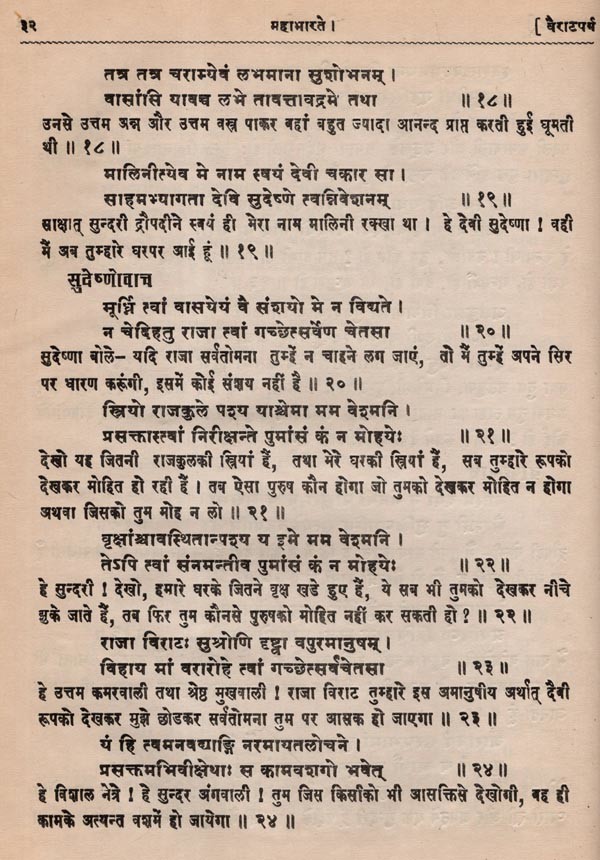 ३२ महाभारते । [ वैराटपर्व
तत्र तत्र चराम्येवं लभमाना सुशोभनम् ।
वासांसि यावच्च लभे तावत्तावद्रमे तथा ॥ १८ ॥
उनसे उत्तम अन्न और उत्तम वस्त्र पाकर वहां बहुत ज्यादा आनन्द प्राप्त करती हुई घूमती
थी ॥ १८ ॥
मालिनीत्येव मे नाम स्वयं देवी चकार सा ।
साहमभ्यागता देवि सुदेष्णे त्वन्निवेशनम् ॥ १९ ॥
साक्षात् सुन्दरी द्रौपदीने स्वयं ही मेरा नाम मालिनी रक्खा था । हे देवी सुदेष्णा ! वही
मैं अब तुम्हारे घरपर आई हूं ॥ १९ ॥
सुदेष्णोवाच
मूर्ध्नि त्वां वासयेयं वै संशयो मे न विद्यते ।
न चेदिहतु राजा त्वां गच्छेत्सर्वेण चेतसा ॥ २० ॥
सुदेष्णा बोले– यदि राजा सर्वतोमना तुम्हें न चाहने लग जाएं, तो मैं तुम्हें अपने सिर
पर धारण करूंगी, इसमें कोई संशय नहीं है ॥ २० ॥
स्त्रियो राजकुले पश्य याश्चेमा मम वेश्मनि ।
प्रसक्तास्त्वां निरीक्षन्ते पुमांसं कं न मोहयेः ॥ २१ ॥
देखो यह जितनी राजकुलकी स्त्रियां हैं, तथा मेरे घरकी स्त्रियां हैं, सब तुम्हारे रूपको
देखकर मोहित हो रही हैं । तब ऐसा पुरुष कौन होगा जो तुमको देखकर मोहित न होगा
अथवा जिसको तुम मोह न लो ॥ २१ ॥
वृक्षांश्चावस्थितान्पश्य य इमे मम वेश्मनि ।
तेऽपि त्वां संनमन्तीव पुमांसं कं न मोहयेः ॥ २२ ॥
हे सुन्दरी ! देखो, हमारे घरके जितने वृक्ष खडे हुए हैं, ये सब भी तुमको देखकर नीचे
झुके जाते हैं, तब फिर तुम कौनसे पुरुषको मोहित नहीं कर सकती हो ? ॥ २२ ॥
राजा विराटः सुश्रोणि दृष्ट्वा वपुरमानुषम् ।
विहाय मां वरारोहे त्वां गच्छेत्सर्वचेतसा ॥ २३ ॥
हे उत्तम कमरवाली तथा श्रेष्ठ मुखवाली ! राजा विराट तुम्हारे इस अमानुषीय अर्थात् दैवी
रूपको देखकर मुझे छोडकर सर्वतोमना तुम पर आसक्त हो जाएगा ॥ २३ ॥
यं हि त्वमनवद्याङ्गि नरमायतलोचने ।
प्रसक्तमभिवीक्षेथाः स कामवशगो भवेत् ॥ २४ ॥
हे विशाल नेत्रे ! हे सुन्दर अंगवाली ! तुम जिस किसीको भी आसक्तिसे देखोगी, वह ही
कामके अत्यन्त वशमें हो जायेगा ॥ २४ ॥